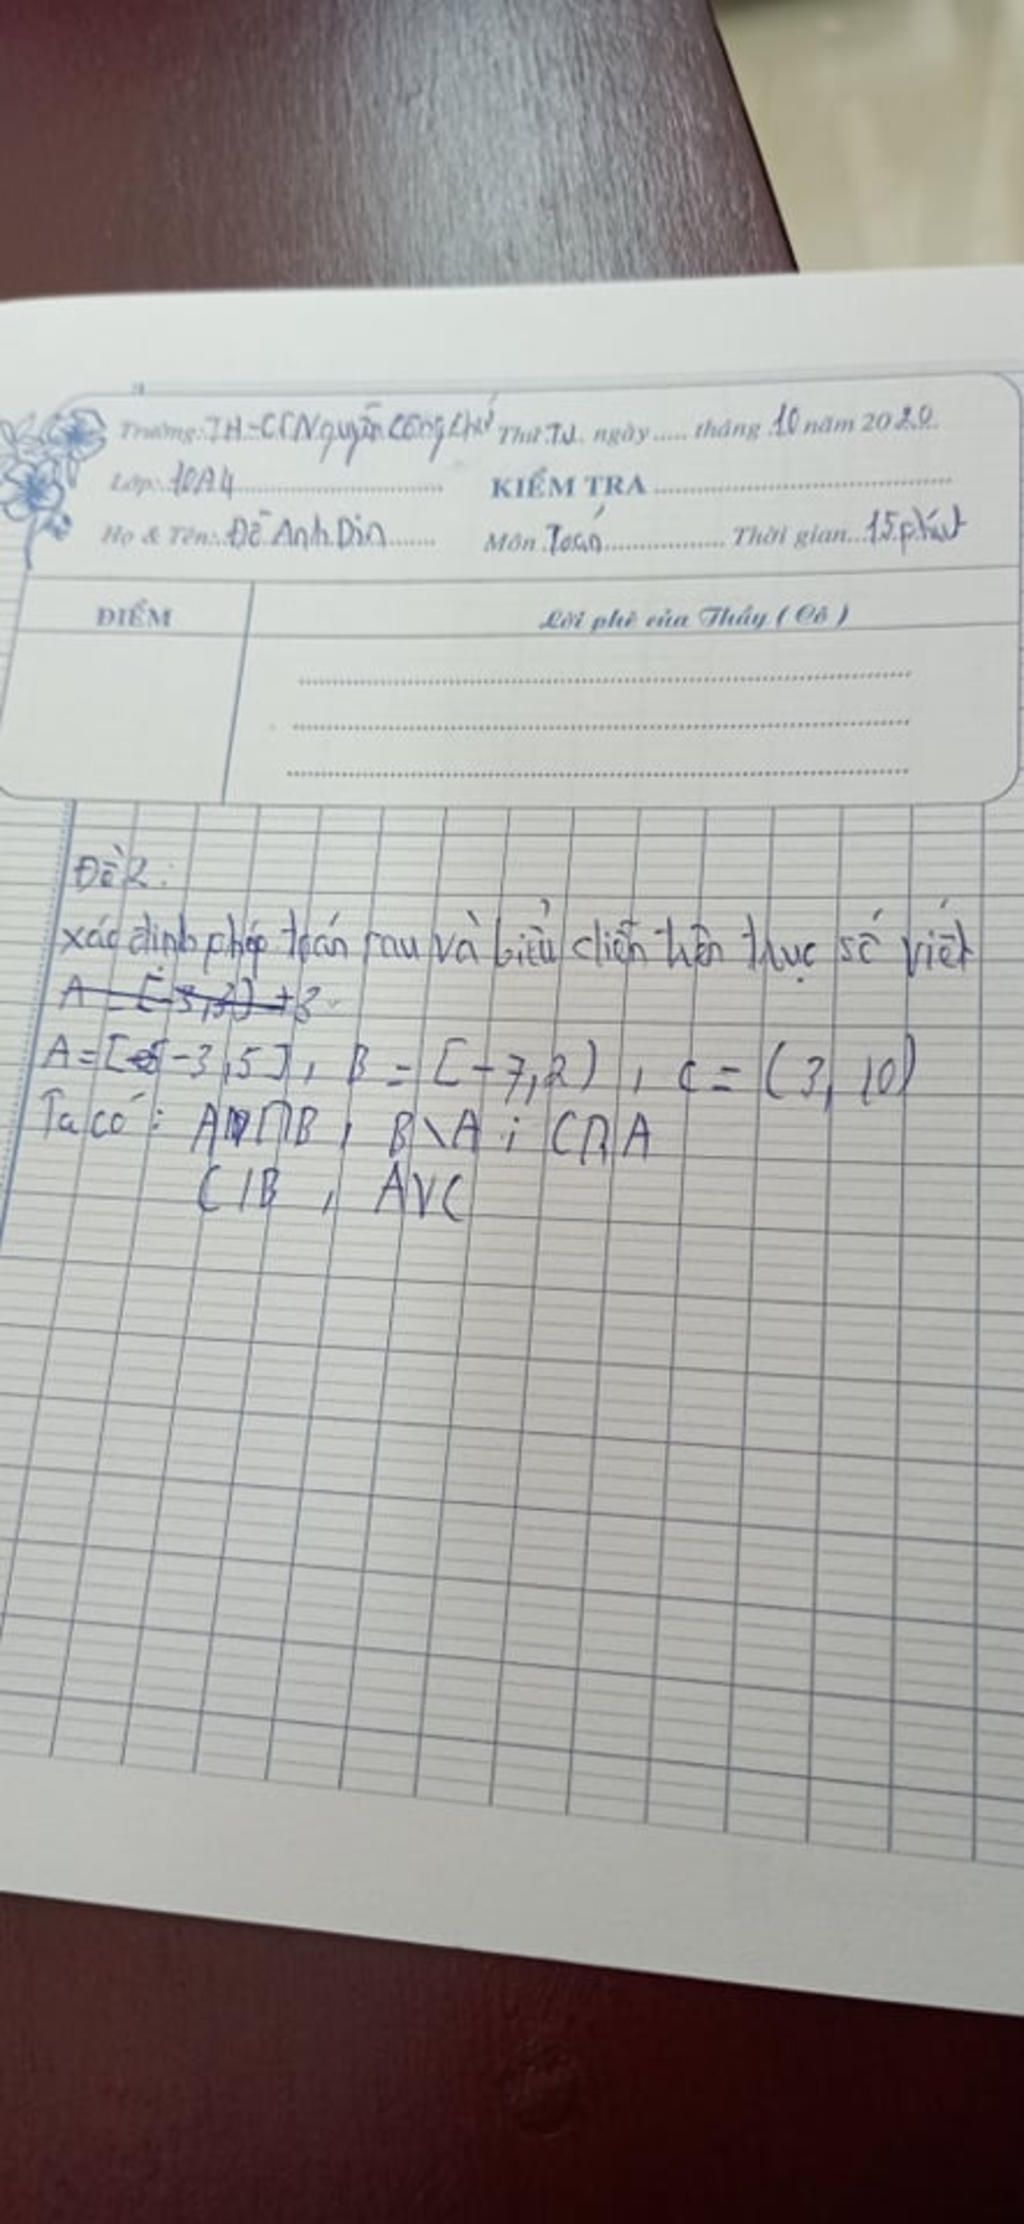 Trường: TH-CS Nguyễn Công Chứ Thứ: Tư. ngày ..... tháng 10 năm 2020
Lớp: 10A4 KIỂM TRA
Họ & Tên: Đỗ Anh Din Môn Toán Thời gian 15 phút
ĐIỂM Lời phê của Thầy ( Cô )
Đề 2:
xác định phép toán sau và biểu diễn trên trục số viết
A = [-3,3) + 3
A = [-3,5], B = [-7,2), C = (3, 10)
Ta có: A∩B, B\A; C∩A
C\B, A∪C